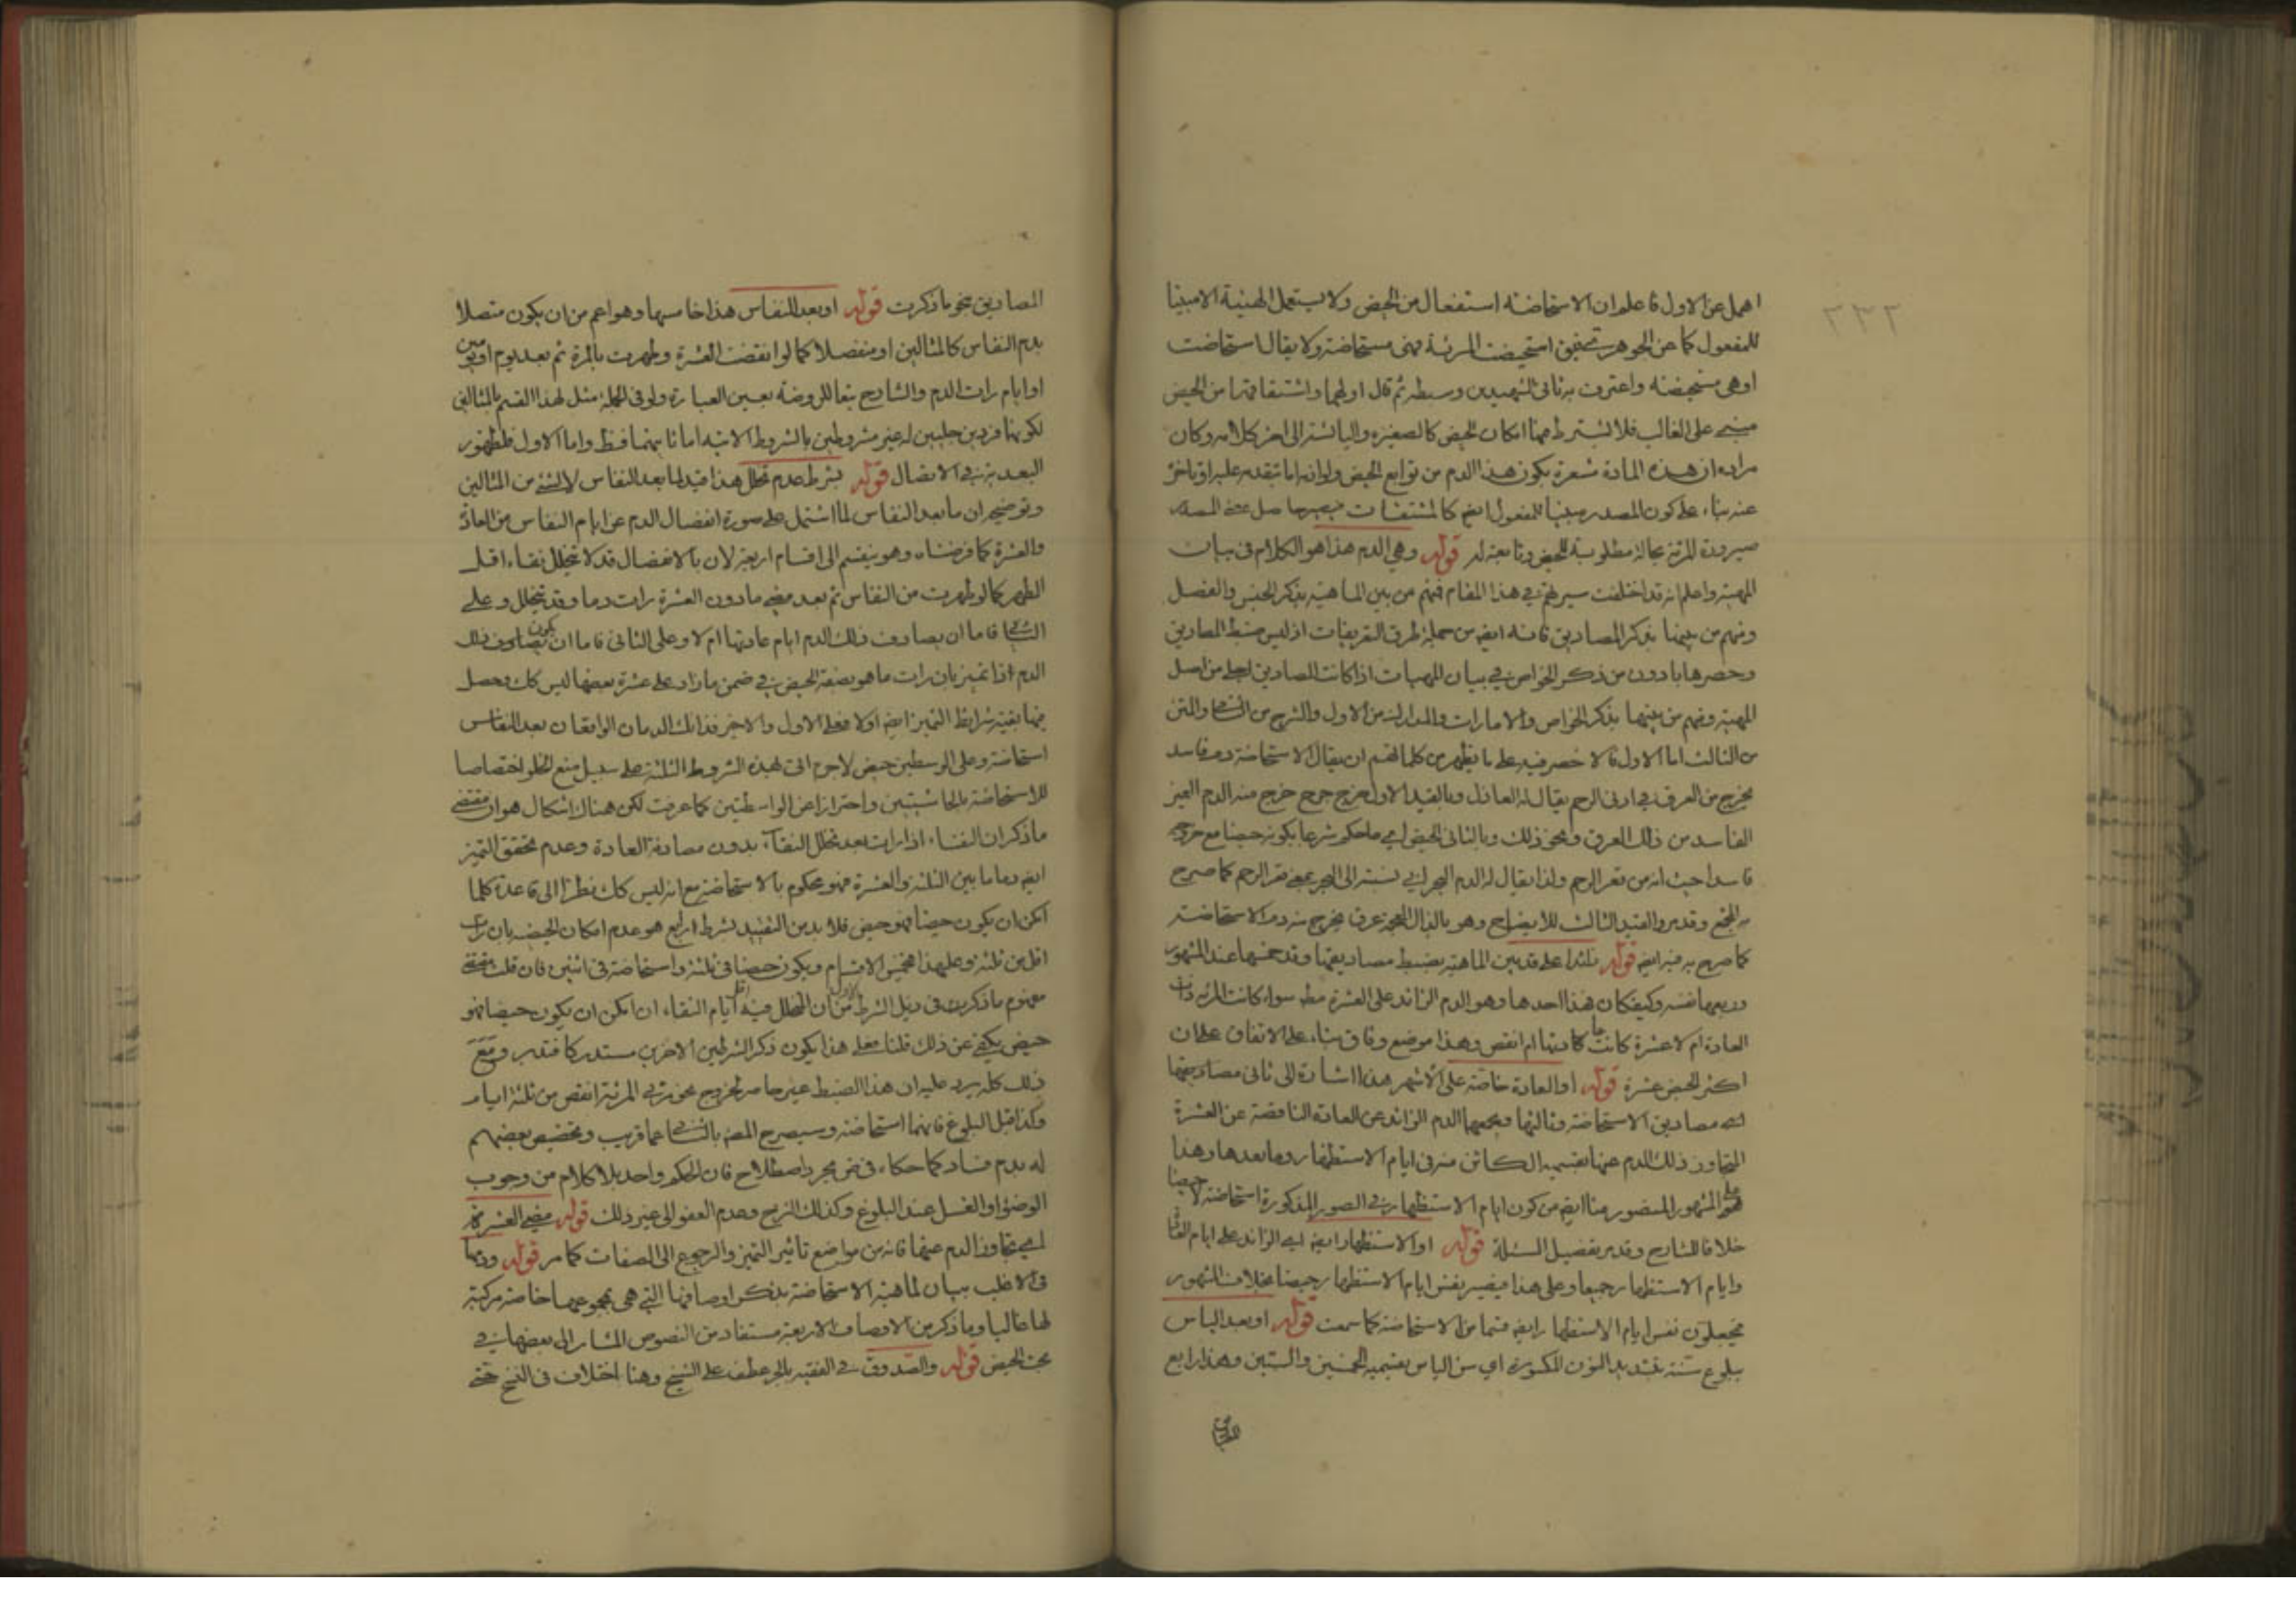 ٢٣٢
اهمل عن الاول فاعلم ان الاستحاضة استفعال من الحيض ولا يستعمل الهيئة الا مبنيا
للمفعول كما عن الجوهري استحيضت المرئة فهى مستحاضة ولا يقال استحاضت
او هى مستحيضة واعترف به ثانى الشهيدين وسبطه ثم قال اولهما واشتقاقها من الحيض
مبنى على الغالب فلا يشترط فيها امكان الحيض كالصغيرة واليائسة الى اخر كلامه وكان
مراده ان هذه المادة مشعرة بكون هذا الدم من توابع الحيض ولو انه اما تقدمه عليه او تاخر
عنه بناء على كون المصدر مبنيا للمفعول ايضا كالمشتقات حاصل معنى المصدر
صيرورة المرئة بحالة مطلوبة للحيض وتابعة له قوله وهى الدم هذا هو الكلام فى بيان
المهية واعلم انه قد اختلفت سيرتهم فى هذا المقام فمنهم من بين الماهية بذكر الجنس والفصل
ومنهم من بينها بذكر المصاديق فانه ايضا من جملة طرق التعريفات اذ ليس ضبط المصاديق
وحصرها بادون من ذكر الخواص فى بيان المهيات اذا كانت المصاديق اجلى من اصل
المهية ومنهم من بينها بذكر الخواص والامارات والمدارك من الاول والشرح من الثانى والمتن
من الثالث اما الاول فالاخصر فيه على ما يظهر من كلماتهم ان يقال الاستحاضة دم فاسد
يخرج من العرق فى ادنى الرحم يقال له العاذل وبالقيد الاول خرج جرح خرج منه الدم الغير
الفاسد من ذلك العرق ونحو ذلك وبالثانى الحيض اى ما حكم شرعا بكونه حيضا مع خروجه
فاسدا حيث انه من قعر الرحم ولذا يقال له الدم البحرانى نسبة الى البحر بمعنى قعر الرحم كما صرح
به المجمع وقد مر والقيد الثالث للايضاح وهو بالذال المعجمة عرق يخرج منه دم الاستحاضة
كما صرح به فيه ايضا قوله على قد بين الماهية بضبط مصاديقها وقد خمسها عند المشهور
وربعها نفسه وكيفكان هذا احدها وهو الدم الزائد على العشرة مط سواء كانت المرئة ذات
العادة ام لا عشرة كانت عادتها ام انقص وهذا موضع وفاق بناء على الاتفاق على ان
اكثر الحيض عشرة قوله او العادة خاصة على الاشهر هذا اشارة الى ثانى مصاديقها
مصاديق الاستحاضة وثالثها ويجمعها الدم الزائد عن العادة الناقصة عن العشرة
المتجاوز ذلك الدم عنها بقسميه الكائن منه فى ايام الاستظهار وما بعدها وهذا
هو المشهور المنصور منا ايضا من كون ايام الاستظهار فى الصور المذكورة استحاضة لا حيضا
خلافا للشارح وقد مر تفصيل المسئلة قوله او الاستظهار ايضا اى الزائد على ايام العادة
وايام الاستظهار جميعا وعلى هذا فيصير نفس ايام الاستظهار حيضا بخلاف المشهور
فيجعلون نفس ايام الاستظهار ايضا قسما من الاستحاضة كما سمعت قوله او بعد الياس
ببلوغ سنه بتشديد النون المكسورة اى سن الياس بقسميه الخمسين والستين وهذا رابع
المصاديق
المصاديق نحو ما ذكرت قوله او بعد النفاس هذا خامسها وهو اعم من ان يكون متصلا
بدم النفاس كالمثالين او منفصلا كما لو انقضت العشرة وطهرت بالمرة ثم بعد يوم او يومين
او ايام رات الدم والشارح تبعا للروضة بعين العبارة ولو فى الجملة مثل لهذا القسم بالمثالين
لكونها فردين جليين له غير مشروطين بالشروط الاتية اما ثانيهما فظ واما الاول فلظهور
البعدية فى الاتصال قوله بشرط عدم تخلل هذا قيد لما بعد النفاس لا لشئ من المثالين
وتوضيحه ان ما بعد النفاس لما اشتمل على صورة انفصال الدم عن ايام النفاس من العادة
والعشرة كما فرضناه وهو ينقسم الى اقسام اربعة لان بالانفصال قد لا يتخلل نقاء اقل
الطهر كما لو طهرت من النفاس ثم بعد مضى ما دون العشرة رات دما وقد يتخلل وعلى
الثانى فاما ان يصادف ذلك الدم ايام عادتها ام لا وعلى الثانى فاما ان يكون ذلك
الدم اذا تميز بان رات ما هو بصفة الحيض فى ضمن ما زاد على عشرة بعضها ليس كك وحصل
فيها بقية شرائط التميز ايضا اولا فعلى الاول والاخير فذانك الدمان الواقعان بعد النفاس
استحاضة وعلى الوسطين حيض لا جرم اتى بهذه الشروط الثلثة على سبيل منع الخلو اختصاصا
للاستحاضة بالحاشيتين واحترازا عن الواسطتين كما عرفت لكن هناك اشكال هو ان مقتضى
ما ذكر ان النفساء اذا رات بعد تخلل النقاء بدون مصادفة العادة وعدم تحقق التميز
ايضا دما ما بين الثلثة والعشرة فهو محكوم بالاستحاضة مع انه ليس كك نظرا الى قاعدة كلما
امكن ان يكون حيضا فهو حيض فلا بد من التقييد بشرط رابع هو عدم امكان الحيضية بان رات
اقل من ثلثة وعلى هذا فخمس الاقسام ويكون حيضا فى ثلثة واستحاضة فى اثنين فان قلت مقتضى
مفهوم ما ذكرت فى ذيل الشرط الاول من ان المتخلل فيه اقل ايام النقاء ان امكن ان يكون حيضا فهو
حيض يكفى عن ذلك قلنا فعلى هذا يكون ذكر الشرطين الاخرين مستدركا فتدبر ومع
ذلك كله يرد عليه ان هذا الضبط غير حاصر لخروج نحو مرئى المرئة انقص من ثلثة ايام
وكذا قبل البلوغ فانها استحاضة وسيصرح المص بالثانى عما قريب وتخصيص بعضهم
له بدم فساد كما حكاه فى مجرد اصطلاح فان الحكم واحد بلا كلام من وجوب
الوضوء او الغسل عند البلوغ وكذلك النزح وعدم العفو الى غير ذلك قوله مضى العشرة
اى تجاوز الدم عنها فانه من مواضع تاثير التميز والرجوع الى الصفات كما مر قوله ودمها
فى الاغلب بيان لماهية الاستحاضة بذكر اوصافها التى هى بمجموعها خاصة مركبة
لها غالبا وما ذكر من الاوصاف الاربعة مستفاد من النصوص المشار الى بعضها فى
بحث الحيض قوله والصدوق فى الفقيه بالجر عطف على الشيخ وهنا اختلاف فى النسخ